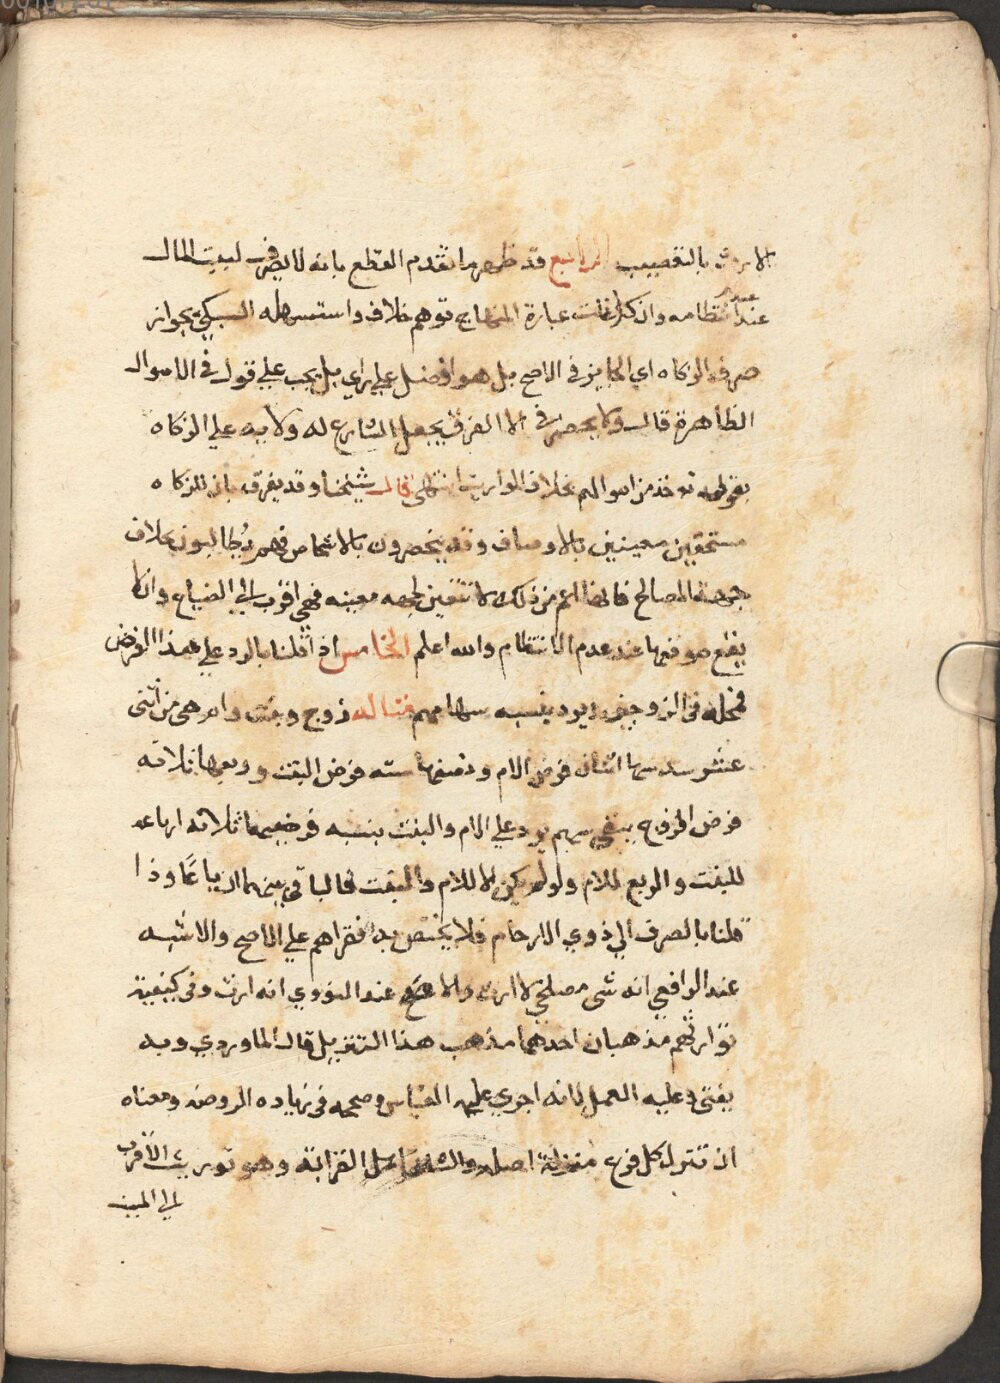 لا يرث بالتعصيب الرابع قد ظهر مما تقدم القطع بانه لا يصرف لبيت المال
عند عدم انتظامه وان كانت عبارة المنهاج توهم خلافه واستشكله السبكي بجواز
صرف الزكاه اي الجايز في الاصح بل هو افضل علي راي بل يجب علي قول في الاموال
الظاهرة قال ولا يحضرني الا الفرق بجعل الشارع له ولايه علي الزكاه
بقوله تؤخذ من اموالهم بخلاف المواريث انتهى قال شيخنا وقد يفرق بان للزكاه
مستحقين معينين بالاوصاف وقد ينحصرون بالاشخاص فهم يطالبون بخلاف
جهة المصالح فانها اعم من ذلك لا تتعين لجهه معينه فهي اقرب الي الضياع وان لا
يقع موقعها عند عدم الانتظام والله اعلم الخامس اذا قلنا بالرد علي هذا الفرض
فمحله في الزوجين ويرد بنسبه سهامهم مثاله زوج وبنت وام هي من اثنى
عشر سدسها اثنان فرض الام ونصفها سته فرض البنت وربعها ثلاثه
فرض الزوج يبقي سهم يرد علي الام والبنت بنسبه فرضيهما ثلاثه ارباعه
للبنت والربع للام ولو لم يكن الا الام والبنت فالباقي بينهما ارباعا وذا
قلنا بالصرف الي ذوي الارحام فلا يختص به فقراهم علي الاصح والاشبه
عند الرافعي انه شى مصلحي لا ارث والاصح عند النووي انه ارث وفي كيفية
توارثهم مذهبان احدهما مذهب هذا التنزيل قال الماوردي وبه
يفتى وعليه العمل لانه اجري علي القياس وصححه في زياده الروضه ومعناه
ان تنزل كل فرع منزلة اصله والثاني اهل القرابة وهو توريث الاقرب
الي الميت